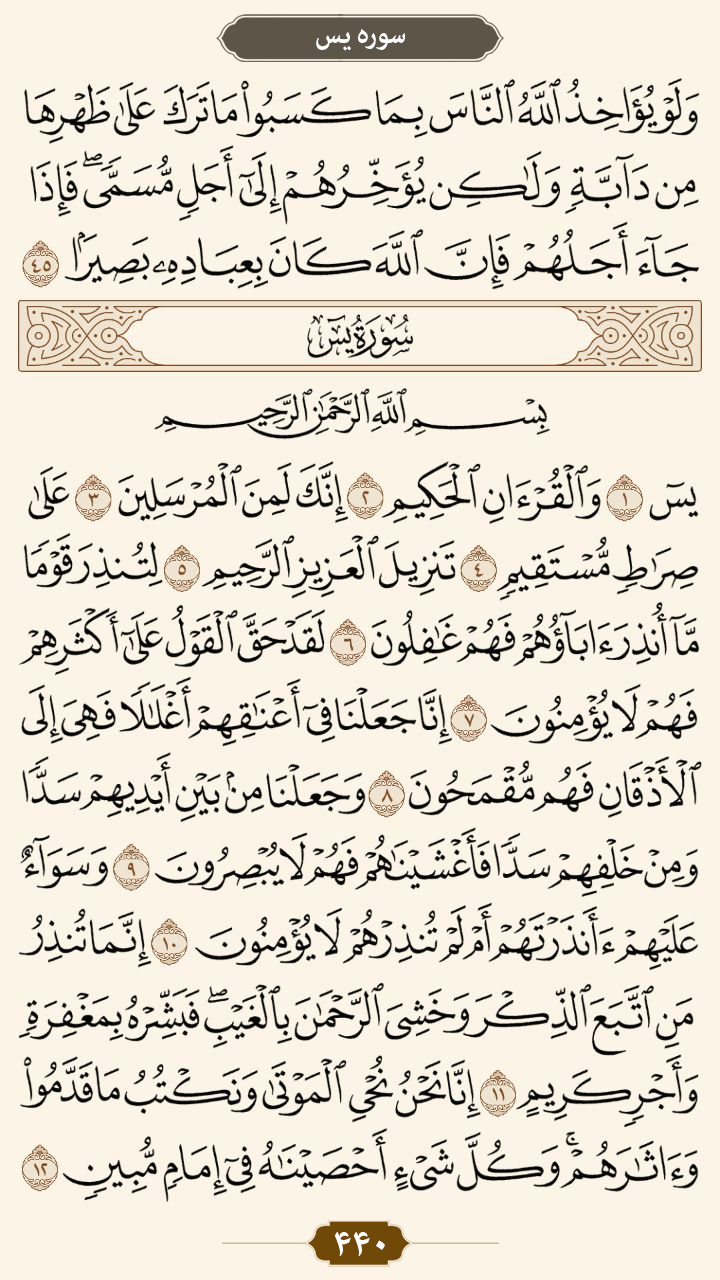 سوره یس
وَلَوْ يُؤَاخِذُ ٱللَّهُ ٱلنَّاسَ بِمَا كَسَبُوا۟ مَا تَرَكَ عَلَىٰ ظَهْرِهَا
مِن دَآبَّةٍ وَلَـٰكِن يُؤَخِّرُهُمْ إِلَىٰٓ أَجَلٍ مُّسَمًّى ۖ فَإِذَا
جَآءَ أَجَلُهُمْ فَإِنَّ ٱللَّهَ كَانَ بِعِبَادِهِۦ بَصِيرًۢا ٤٥
سُورَةُ يسٓ
بِسْمِ ٱللَّهِ ٱلرَّحْمَـٰنِ ٱلرَّحِيمِ
يسٓ ١ وَٱلْقُرْءَانِ ٱلْحَكِيمِ ٢ إِنَّكَ لَمِنَ ٱلْمُرْسَلِينَ ٣ عَلَىٰ
صِرَٰطٍ مُّسْتَقِيمٍ ٤ تَنزِيلَ ٱلْعَزِيزِ ٱلرَّحِيمِ ٥ لِتُنذِرَ قَوْمًا
مَّآ أُنذِرَ ءَابَآؤُهُمْ فَهُمْ غَـٰفِلُونَ ٦ لَقَدْ حَقَّ ٱلْقَوْلُ عَلَىٰٓ أَكْثَرِهِمْ
فَهُمْ لَا يُؤْمِنُونَ ٧ إِنَّا جَعَلْنَا فِىٓ أَعْنَـٰقِهِمْ أَغْلَـٰلًا فَهِىَ إِلَى
ٱلْأَذْقَانِ فَهُم مُّقْمَحُونَ ٨ وَجَعَلْنَا مِنۢ بَيْنِ أَيْدِيهِمْ سَدًّا
وَمِنْ خَلْفِهِمْ سَدًّا فَأَغْشَيْنَـٰهُمْ فَهُمْ لَا يُبْصِرُونَ ٩ وَسَوَآءٌ
عَلَيْهِمْ ءَأَنذَرْتَهُمْ أَمْ لَمْ تُنذِرْهُمْ لَا يُؤْمِنُونَ ١٠ إِنَّمَا تُنذِرُ
مَنِ ٱتَّبَعَ ٱلذِّكْرَ وَخَشِىَ ٱلرَّحْمَـٰنَ بِٱلْغَيْبِ ۖ فَبَشِّرْهُ بِمَغْفِرَةٍ
وَأَجْرٍ كَرِيمٍ ١١ إِنَّا نَحْنُ نُحْىِ ٱلْمَوْتَىٰ وَنَكْتُبُ مَا قَدَّمُوا۟
وَءَاثَـٰرَهُمْ ۚ وَكُلَّ شَىْءٍ أَحْصَيْنَـٰهُ فِىٓ إِمَامٍ مُّبِينٍ ١٢
۴۴۰